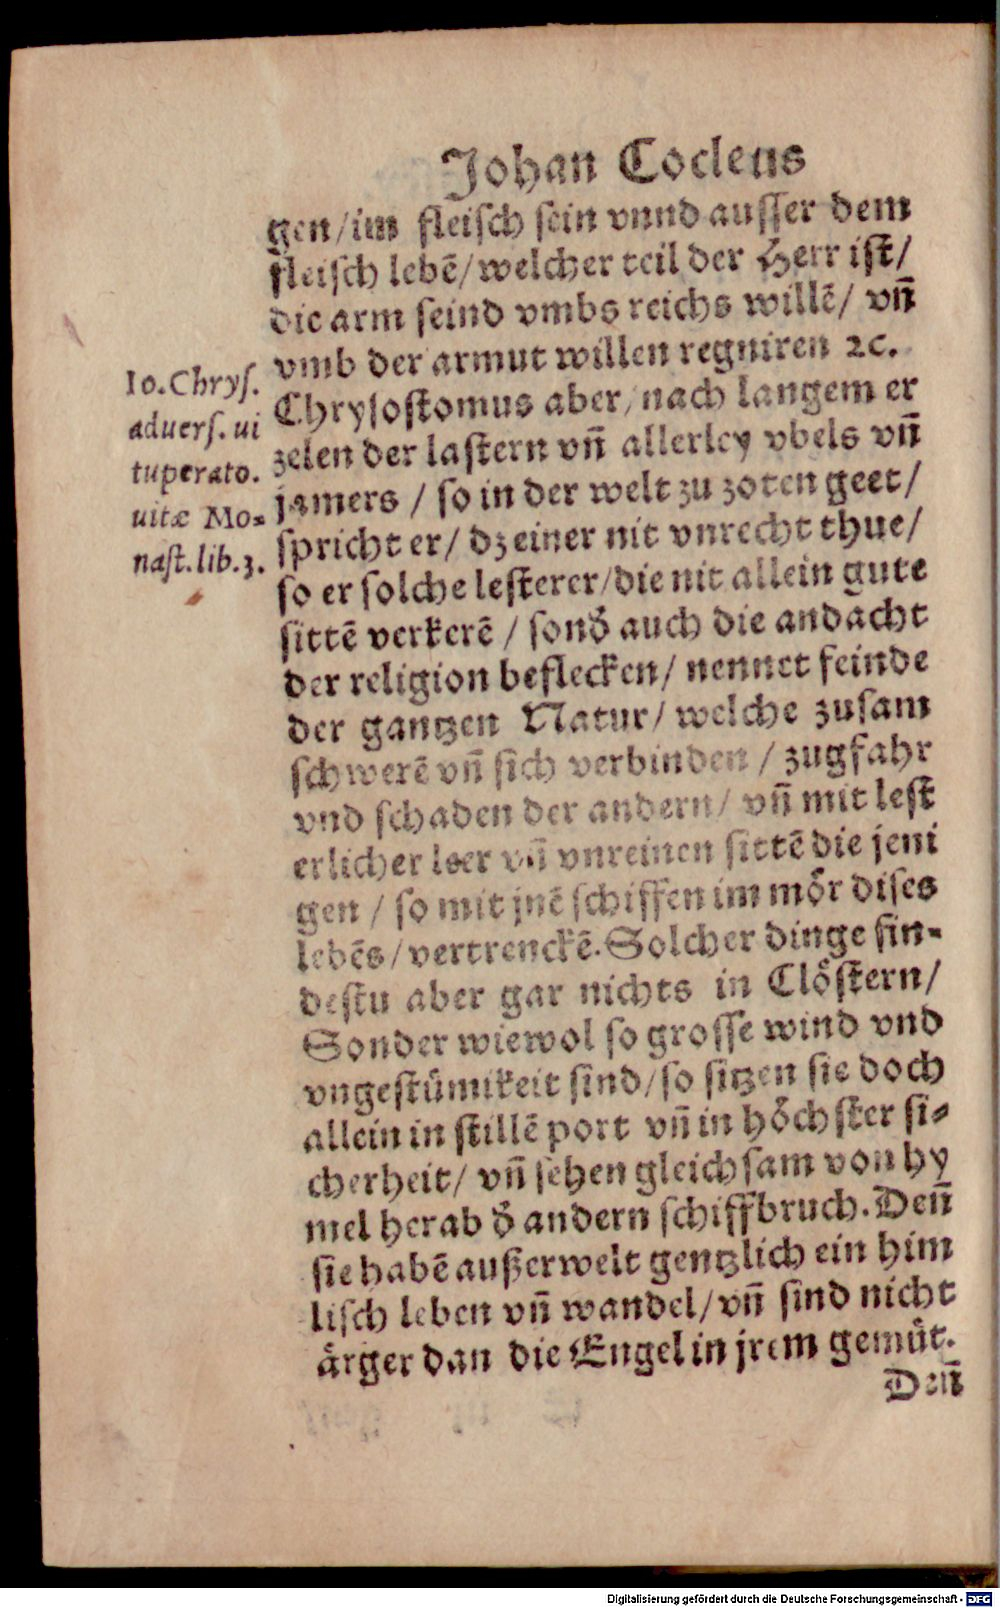 Johan Cocleus
gen/im fleisch sein vnnd ausser dem
fleisch lebē/welcher teil der Herr ist/
die arm seind vmbs reichs willē/ vñ
vmb der armut willen regniren ꝛc.
Io.Chrys.
aduers. ui
tuperato.
uitæ Mo=
nast.lib.3.
Chrysostomus aber/nach langem er
zelen der lastern vñ allerley vbels vñ
jamers / so in der welt zu zoten geet/
spricht er/ dz einer nit vnrecht thue/
so er solche lesterer/die nit allein gute
sittē verkerē / sonď auch die andacht
der religion beflecken/ nennet feinde
der gantzen Natur/ welche zusam
schwerē vñ sich verbinden / zugfahr
vnd schaden der andern/ vñ mit lest
erlicher leer vñ vnreinen sittē die jeni
gen / so mit jnē schiffen im moͤr dises
lebēs/vertrenckē. Solcher dinge fin=
destu aber gar nichts in Cloͤstern/
Sonder wiewol so grosse wind vnd
vngestuͤmikeit sind/so sitzen sie doch
allein in stillē port vñ in hoͤchster si=
cherheit/ vñ sehen gleichsam von hy
mel herab ď andern schiffbruch. Deñ
sie habē außerwelt gentzlich ein him
lisch leben vñ wandel/vñ sind nicht
aͤrger dan die Engel in jrem gemuͤt.
Deñ
Digitalisierung gefördert durch die Deutsche Forschungsgemeinschaft - DFG